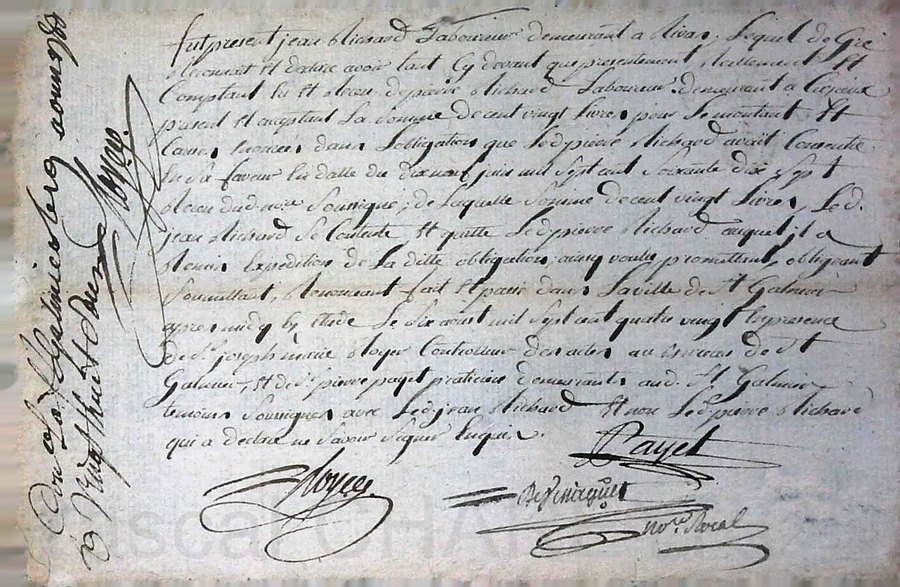 fut present jean Richard Laboureur demeurant a Rivas, Lequel de Gré
Reconnait Et declare avoir Eu Cy devant que presentement Reellement Et
Comptant Eu Et Receu de pierre Richard Laboureur demeurant a
present Et acceptant La Somme de cent vingt livres pour Le montant Et
Causes Enoncées dans Lobligation que Led pierre Richard avait Consentie
En Sa faveur En datte du dixneuf juin mil Sept cent Soixante dix Sept
Receu dud. noire Soussigné, de laquelle Somme de cent vingt Livres, Led.
jean Richard Se Contente Et quitte Led pierre Richard auquel il a
Remis Expedition de La ditte obligation, ainsy voulu, promettant, obligeant
Soumettant, Renonçant fait Et passé dans La ville de St Galmier
apres midy Etude Le Six aoust mil Sept cent quatre vingt En presence
de Sr joseph marie Royer Controlleur des actes au Bureau de St
Galmier, Et de Sr pierre payet praticien demeurants aud. St Galmier
temoins Soussignés avec Led jean Richard Et non Led pierre Richard
qui a declaré ne Savoir Signer Enquis.
Payet
Royer
nore Royal
Conlé a St Galmier Le 9 aoust 1780
Royer